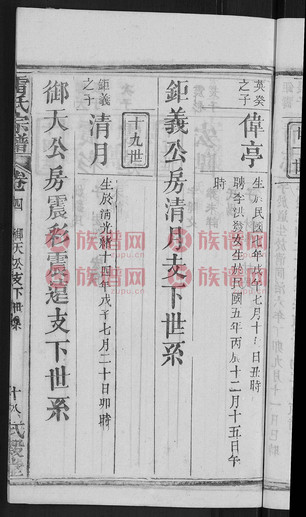 英癸
之子
偉亭
生於民國七年戊午七月十一日丑時
聘李洪發女生於民國五年丙辰十二月十五日午
時
鉅義公房清月支下世系
十九世
鉅義
之子
清月
生於満光緒十四年戊子七月二十日卯時
御天公房震彩震廷支下世系
雷氏宗譜
卷四
御天公支下世系
十八
族譜网
zupu.cn